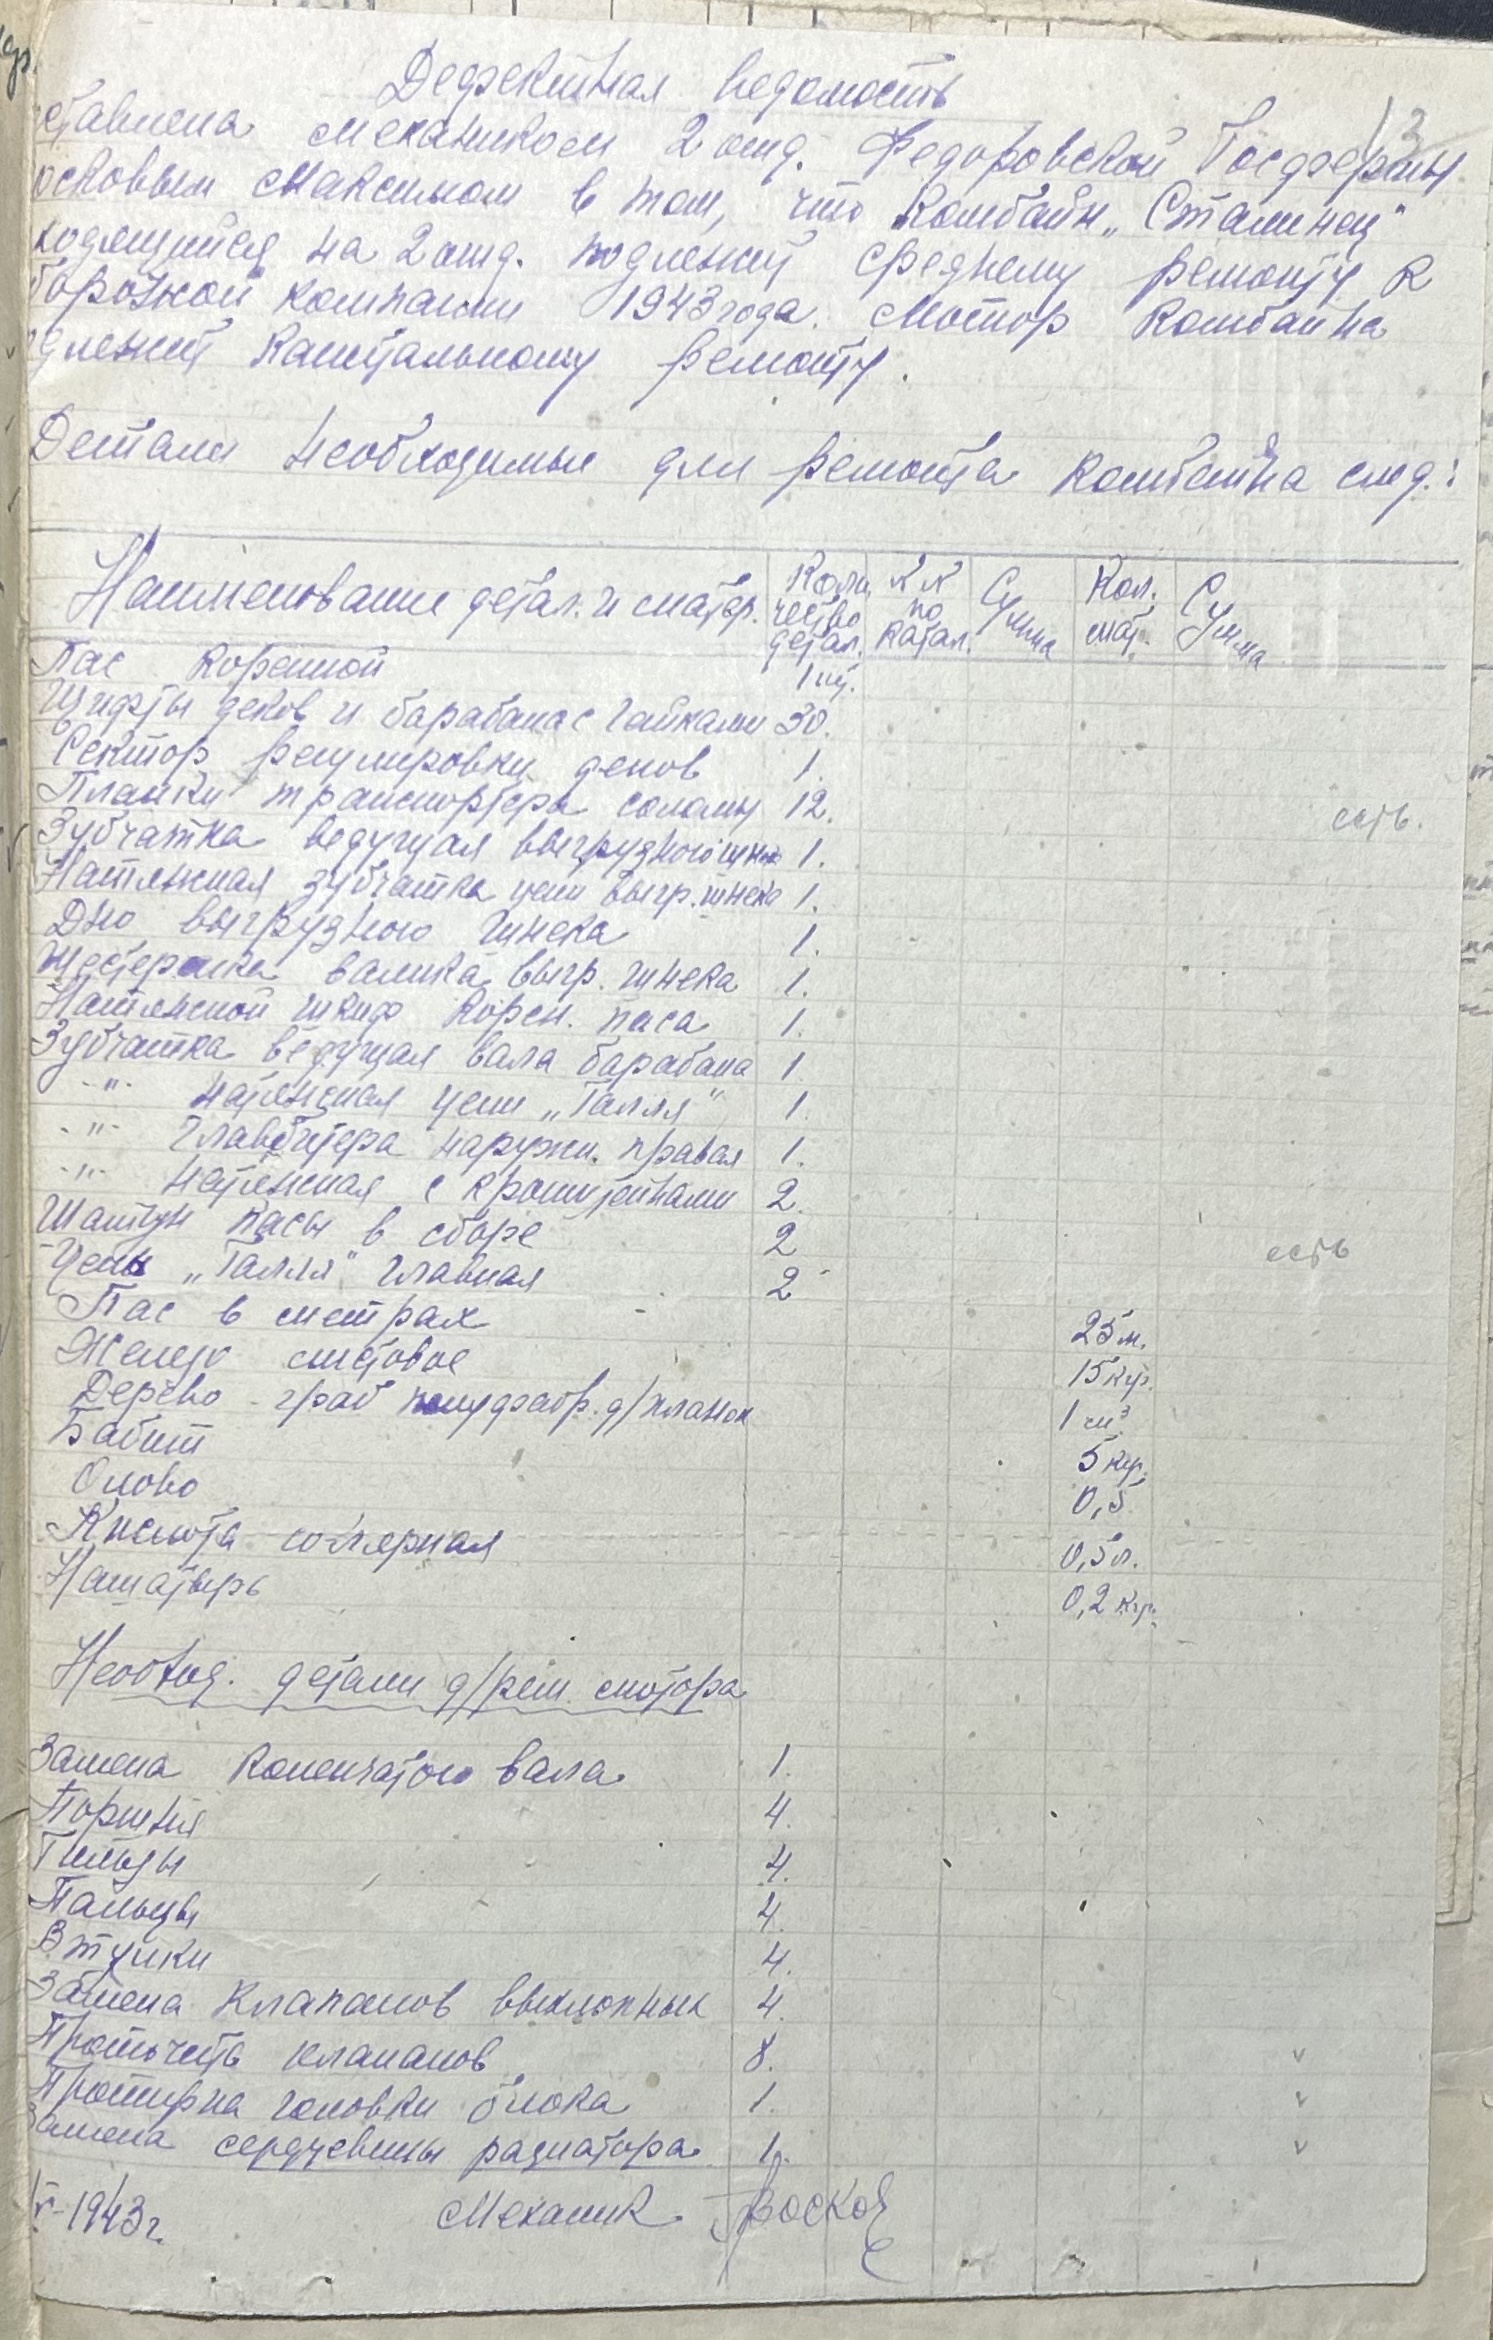 Дефектная ведомость
13
ставлена механиком 2 отд. Федоровской Госфермы
осковым Максимом в том, что комбайн „Сталинец"
ходящийся на 2 отд. подлежит среднему ремонту к
борочной компании 1943 года. Мотор комбайна
длежит капитальному ремонту.
Детали необходимые для ремонта комбайна след.:
Наименование детал. и матер. Количество детал. №№ по катал. Сумма Кол. мат. Сумма
Пас коренной 1 шт.
Штифты деков и барабана с гайками 30.
Сектор регулировки деков 1.
Планки транспортера соломы 12. есть.
Зубчатка ведущая выгрузного шнека 1.
Натяжная зубчатка цепи выгр. шнека 1.
Дно выгрузного шнека 1.
Шестеренка валика выгр. шнека 1.
Натяжной шкиф корен. паса 1.
Зубчатка ведущая вала барабана 1.
-"- натяжная цепи „Галля" 1.
-"- главбитера наружн. правая 1.
-"- натяжная с кронштейнами 2.
Шатун пасы в сборе 2 есть
Цепь „Галля" главная 2
Пас в метрах 25 м.
Железо листовое 15 кгр.
Дерево граб полуфабр. д/планок 1 м³
Бабит 5 кгр.
Олово 0,5
Кислота солярная 0,5 л.
Нашатырь 0,2 кгр.
Необход. детали д/рем. мотора
Замена коленчатого вала 1.
Поршня 4.
Гильзы 4.
Пальцы 4.
Втулки 4.
Замена клапанов выхлопных 4.
Проточить клапанов 8. v
Протирка головки блока 1. v
Замена сердцевины радиатора 1. v
V-1943 г. Механик Восков